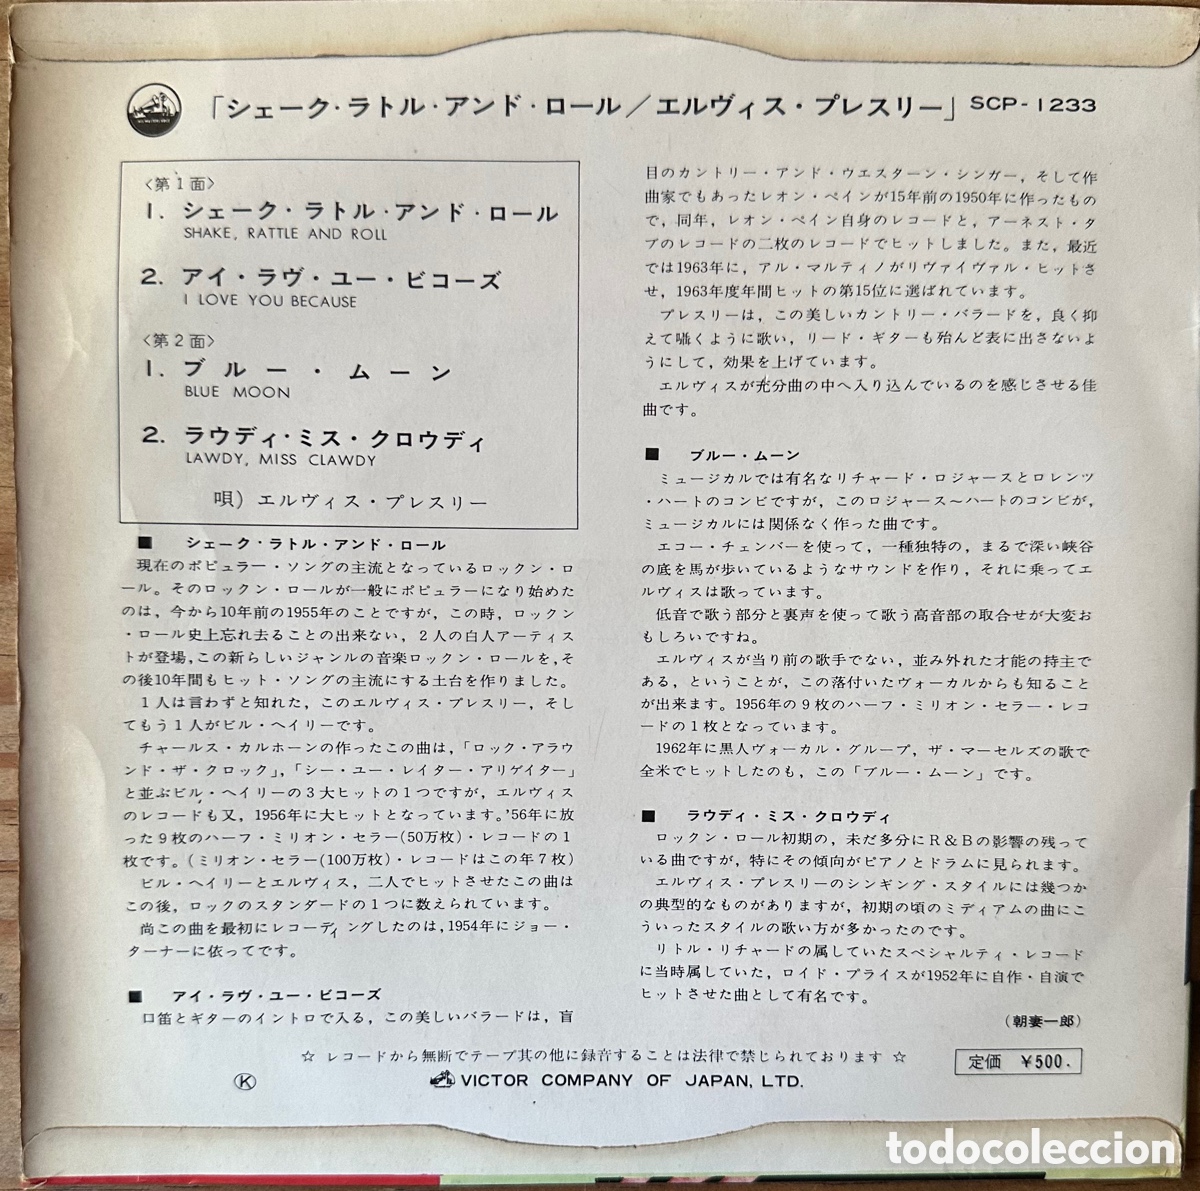 「シェーク・ラトル・アンド・ロール／エルヴィス・プレスリー」 SCP-1233
〈第1面〉
1. シェーク・ラトル・アンド・ロール
SHAKE, RATTLE AND ROLL
2. アイ・ラヴ・ユー・ビコーズ
I LOVE YOU BECAUSE
〈第2面〉
1. ブルー・ムーン
BLUE MOON
2. ラウディ・ミス・クロウディ
LAWDY, MISS CLAWDY
唄）エルヴィス・プレスリー
■ シェーク・ラトル・アンド・ロール
現在のポピュラー・ソングの主流となっているロックン・ロ
ール。そのロックン・ロールが一般にポピュラーになり始めた
のは，今から10年前の1955年のことですが，この時，ロックン
・ロール史上忘れ去ることの出来ない，２人の白人アーティス
トが登場，この新らしいジャンルの音楽ロックン・ロールを，そ
の後10年間もヒット・ソングの主流にする土台を作りました。
１人は言わずと知れた，このエルヴィス・プレスリー，そし
てもう１人がビル・ヘイリーです。
チャールス・カルホーンの作ったこの曲は，「ロック・アラウ
ンド・ザ・クロック」，「シー・ユー・レイター・アリゲイター」
と並ぶビル・ヘイリーの３大ヒットの１つですが，エルヴィス
のレコードも又，1956年に大ヒットとなっています。'56年に放
った９枚のハーフ・ミリオン・セラー(50万枚)・レコードの１
枚です。(ミリオン・セラー(100万枚)・レコードはこの年７枚)
ビル・ヘイリーとエルヴィス，二人でヒットさせたこの曲は
この後，ロックのスタンダードの１つに数えられています。
尚この曲を最初にレコーディングしたのは，1954年にジョー・
ターナーに依ってです。
■ アイ・ラヴ・ユー・ビコーズ
口笛とギターのイントロで入る，この美しいバラードは，盲
目のカントリー・アンド・ウエスターン・シンガー，そして作
曲家でもあったレオン・ペインが15年前の1950年に作ったもの
で，同年，レオン・ペイン自身のレコードと，アーネスト・タ
ブのレコードの二枚のレコードでヒットしました。また，最近
では1963年に，アル・マルティノがリヴァイヴァル・ヒットさ
せ，1963年度年間ヒットの第15位に選ばれています。
プレスリーは，この美しいカントリー・バラードを，良く抑
えて囁くように歌い，リード・ギターも殆んど表に出さないよ
うにして，効果を上げています。
エルヴィスが充分曲の中へ入り込んでいるのを感じさせる佳
曲です。
■ ブルー・ムーン
ミュージカルでは有名なリチャード・ロジャースとロレンツ
・ハートのコンビですが，このロジャース〜ハートのコンビが，
ミュージカルには関係なく作った曲です。
エコー・チェンバーを使って，一種独特の，まるで深い峡谷
の底を馬が歩いているようなサウンドを作り，それに乗ってエ
ルヴィスは歌っています。
低音で歌う部分と裏声を使って歌う高音部の取合せが大変お
もしろいですね。
エルヴィスが当り前の歌手でない，並み外れた才能の持主で
ある，ということが，この落付いたヴォーカルからも知ること
が出来ます。1956年の９枚のハーフ・ミリオン・セラー・レコ
ードの１枚となっています。
1962年に黒人ヴォーカル・グループ，ザ・マーセルズの歌で
全米でヒットしたのも，この「ブルー・ムーン」です。
■ ラウディ・ミス・クロウディ
ロックン・ロール初期の，未だ多分にＲ＆Ｂの影響の残って
いる曲ですが，特にその傾向がピアノとドラムに見られます。
エルヴィス・プレスリーのシンギング・スタイルには幾つか
の典型的なものがありますが，初期の頃のミディアムの曲にこ
ういったスタイルの歌い方が多かったのです。
リトル・リチャードの属していたスペシャルティ・レコード
に当時属していた，ロイド・プライスが1952年に自作・自演で
ヒットさせた曲として有名です。
(朝妻一郎)
☆ レコードから無断でテープ其の他に録音することは法律で禁じられております ☆
定価 ￥500.
Ⓚ VICTOR COMPANY OF JAPAN, LTD.
todocoleccion